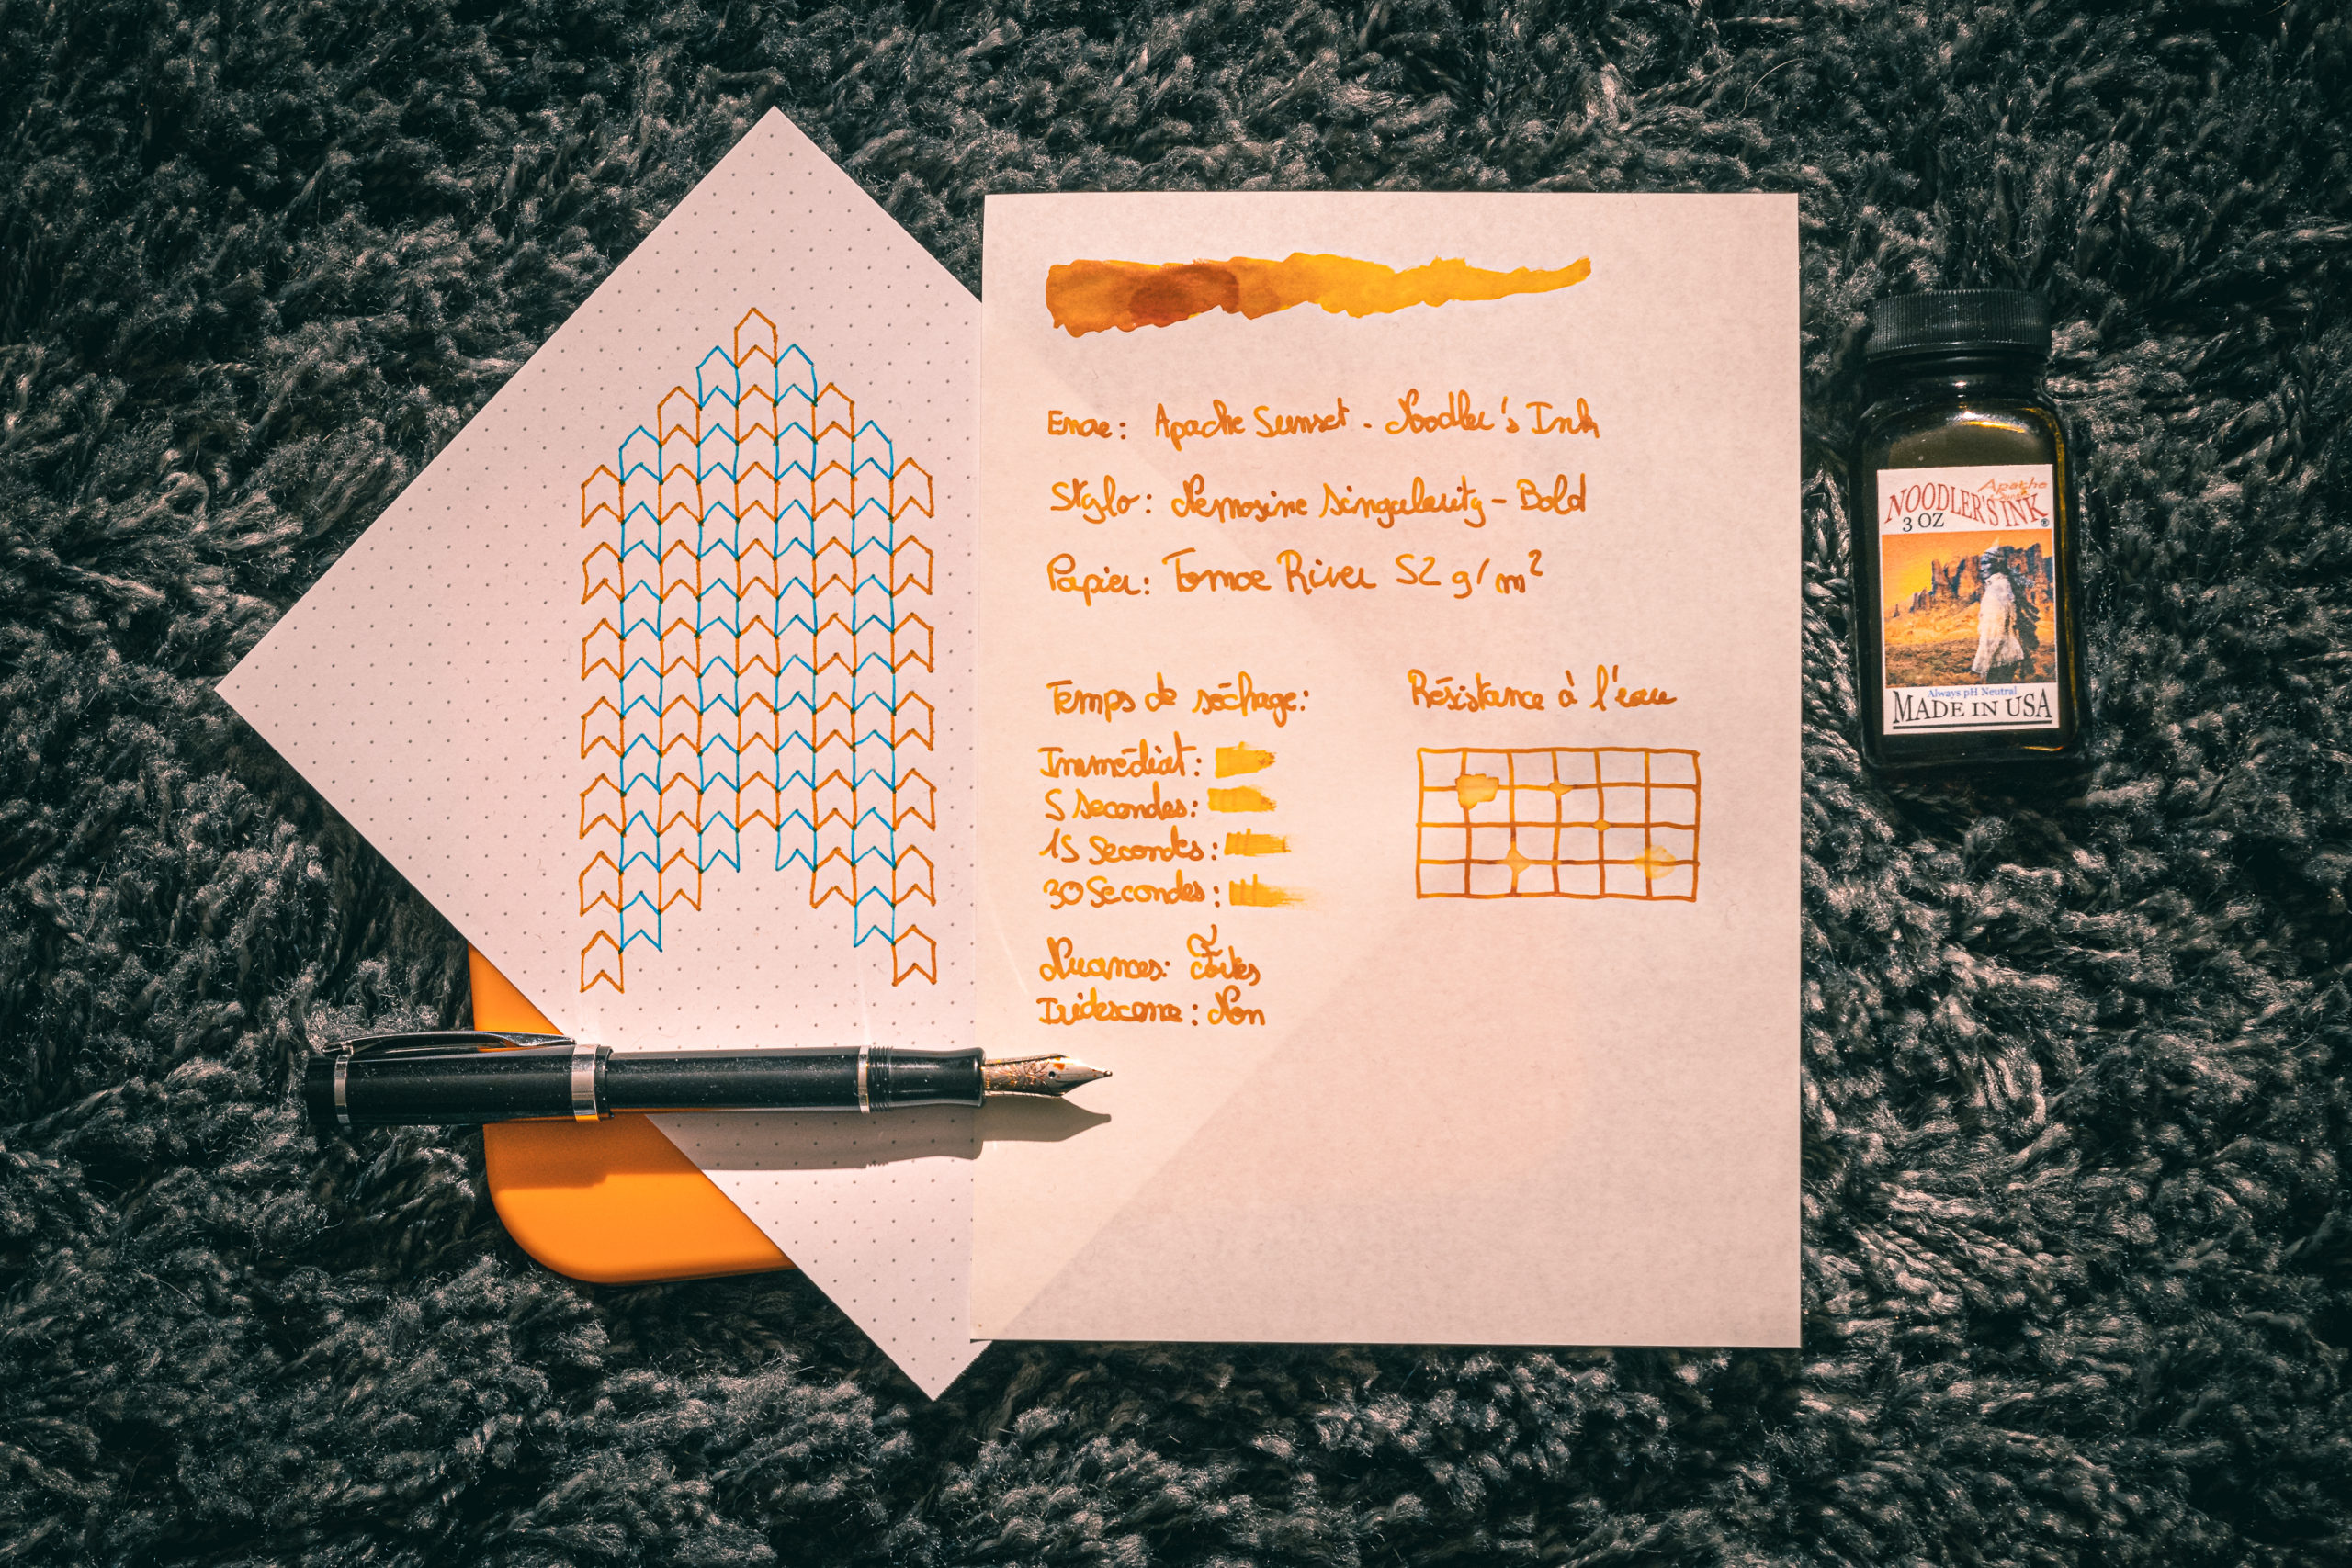 Encre: Apache Sunset - Noodler's Ink
Stylo: Nemosine Singularity - Bold
Papier: Tomoe River 52 g/m²
Temps de séchage:
Immédiat:
5 secondes:
15 Secondes:
30 Secondes:
Nuances: fortes
Iridescence: Non
Résistance à l'eau
Apache
Sunset
NOODLER'S INK®
3 OZ
Always pH Neutral
MADE IN USA